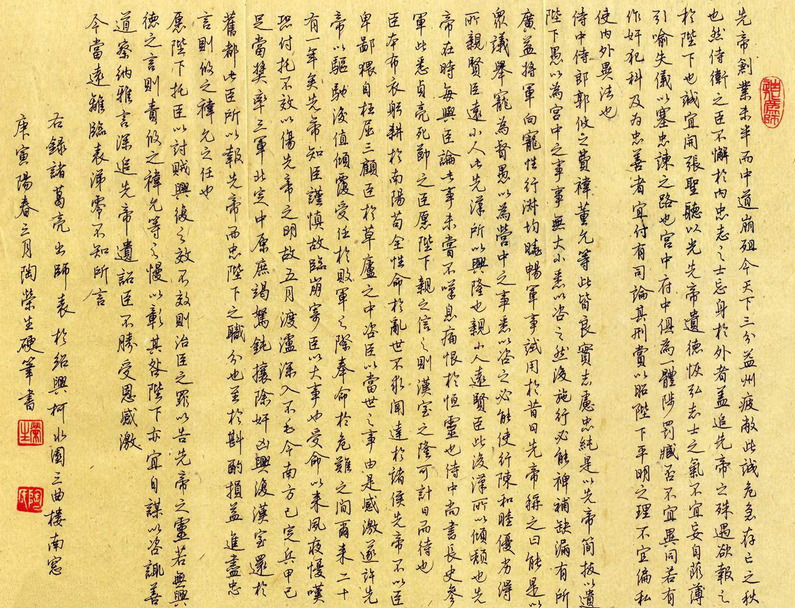 先帝創業未半而中道崩殂今天下三分益州疲敝此誠危急存亡之秋
也然侍衛之臣不懈於內忠志之士忘身於外者蓋追先帝之殊遇欲報之
於陛下也誠宜開張聖聽以光先帝遺德恢弘志士之氣不宜妄自菲薄
引喻失儀以塞忠諫之路也宮中府中俱為體陟罰臧否不宜異同若有
作奸犯科及為忠善者宜付有司論其刑賞以昭陛下平明之理不宜偏私
使內外異法也
侍中侍郎郭攸之費禕董允等此皆良實志慮忠純是以先帝簡拔以遺
陛下愚以為宮中之事事無大小悉以咨之然後施行必能裨補缺漏有所
廣益將軍向寵性行淑均曉暢軍事試用於昔日先帝稱之曰能是以
眾議舉寵為督愚以為營中之事悉以咨之必能使行陳和睦優劣得
所親賢臣遠小人此先漢所以興隆也親小人遠賢臣此後漢所以傾頹也先
帝在時每與臣論此事未嘗不嘆息痛恨於桓靈也侍中尚書長史參
軍此悉貞亮死節之臣愿陛下親之信之則漢室之隆可計日而待也
臣本布衣躬耕於南陽苟全性命於亂世不求聞達於諸侯先帝不以臣
卑鄙猥自枉屈三顧臣於草廬之中咨臣以當世之事由是感激遂許先
帝以驅馳後值傾覆受任於敗軍之際奉命於危難之間爾來二十
有一年矣先帝知臣謹慎故臨崩寄臣以大事也受命以來夙夜憂嘆
恐付托不效以傷先帝之明故五月渡瀘深入不毛今南方已定兵甲已
足當獎率三軍北定中原庶竭駑鈍攘除奸凶興復漢室還於
舊都此臣所以報先帝而忠陛下之職分也至於斟酌損益進盡忠
言則攸之禕允之任也
愿陛下托臣以討賊興復之效不效則治臣之罪以告先帝之靈若無興
德之言則責攸之禕允等之慢以彰其咎陛下亦宜自謀以咨諏善
道察納雅言深追先帝遺詔臣不勝受恩感激
今當遠離臨表涕零不知所言
右錄諸葛亮出師表於紹興柯水園三曲樓南窗
庚寅陽春三月陶榮生硬筆書